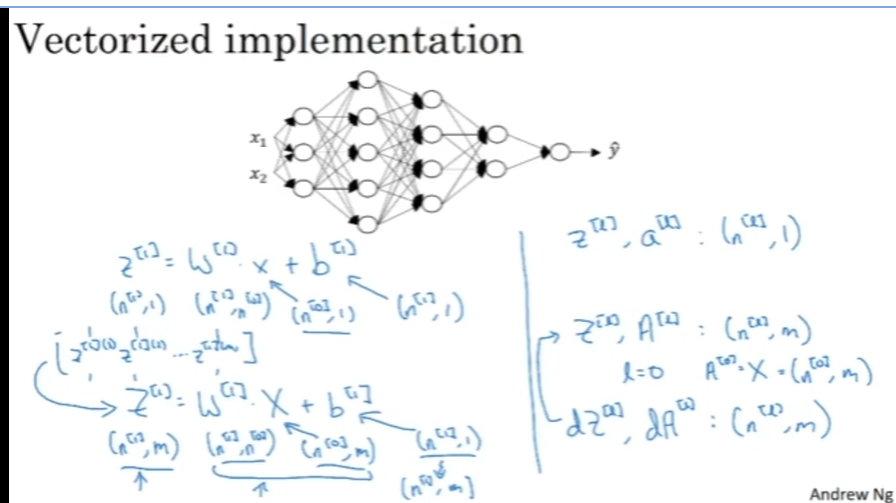 Vectorized implementation
x₁
x₂
ŷ
z^[1] = W^[1] · x + b^[1]
(n^[1],1) (n^[1],n^[0]) (n^[0],1) (n^[1],1)
[z^[1](1) z^[1](2) ... z^[1](m)]
Z^[1] = W^[1] · X + b^[1]
(n^[1],m) (n^[1],n^[0]) (n^[0],m) (n^[1],1)
(n^[1],m)
z^[l], a^[l] : (n^[l],1)
Z^[l], A^[l] : (n^[l],m)
l=0 A^[0] = X = (n^[0],m)
dZ^[l], dA^[l] : (n^[l],m)
Andrew Ng